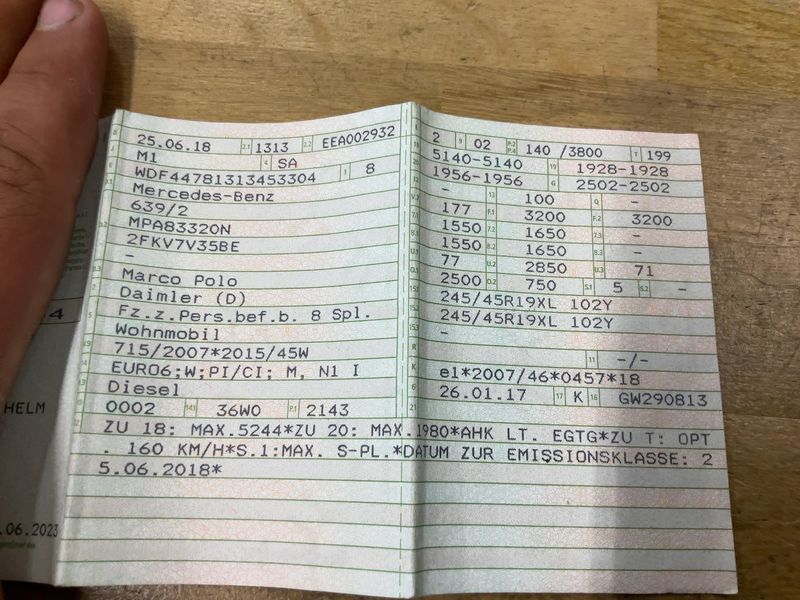 HELM
.06.2023
4
B 25.06.18 2.1 1313 2.2 EEA002932
J M1 4 SA
E WDF44781313453304 3 8
D.1 Mercedes-Benz
639/2
D.2 MPA83320N
2FKV7V35BE
-
D.3 Marco Polo
2 Daimler (D)
5 Fz.z.Pers.bef.b. 8 Spl.
Wohnmobil
V.9 715/2007*2015/45W
14 EURO6;W;PI/CI; M, N1 I
P.3 Diesel
10 0002 14.1 36W0 P.1 2143
L 2 9 02 P.2 P.4 140 /3800 T 199
18 5140-5140 19 1928-1928
20 1956-1956 G 2502-2502
12 - 13 100 Q -
V.7 177 F.1 3200 F.2 3200
7.1 1550 7.2 1650 7.3 -
8.1 1550 8.2 1650 8.3 -
U.1 77 U.2 2850 U.3 71
O.1 2500 O.2 750 S.1 5 S.2 -
15.1 245/45R19XL 102Y
15.2 245/45R19XL 102Y
15.3 -
R 11 -/-
K e1*2007/46*0457*18
6 26.01.17 17 K 16 GW290813
21
22 ZU 18: MAX.5244*ZU 20: MAX.1980*AHK LT. EGTG*ZU T: OPT
. 160 KM/H*S.1:MAX. S-PL.*DATUM ZUR EMISSIONSKLASSE: 2
5.06.2018*